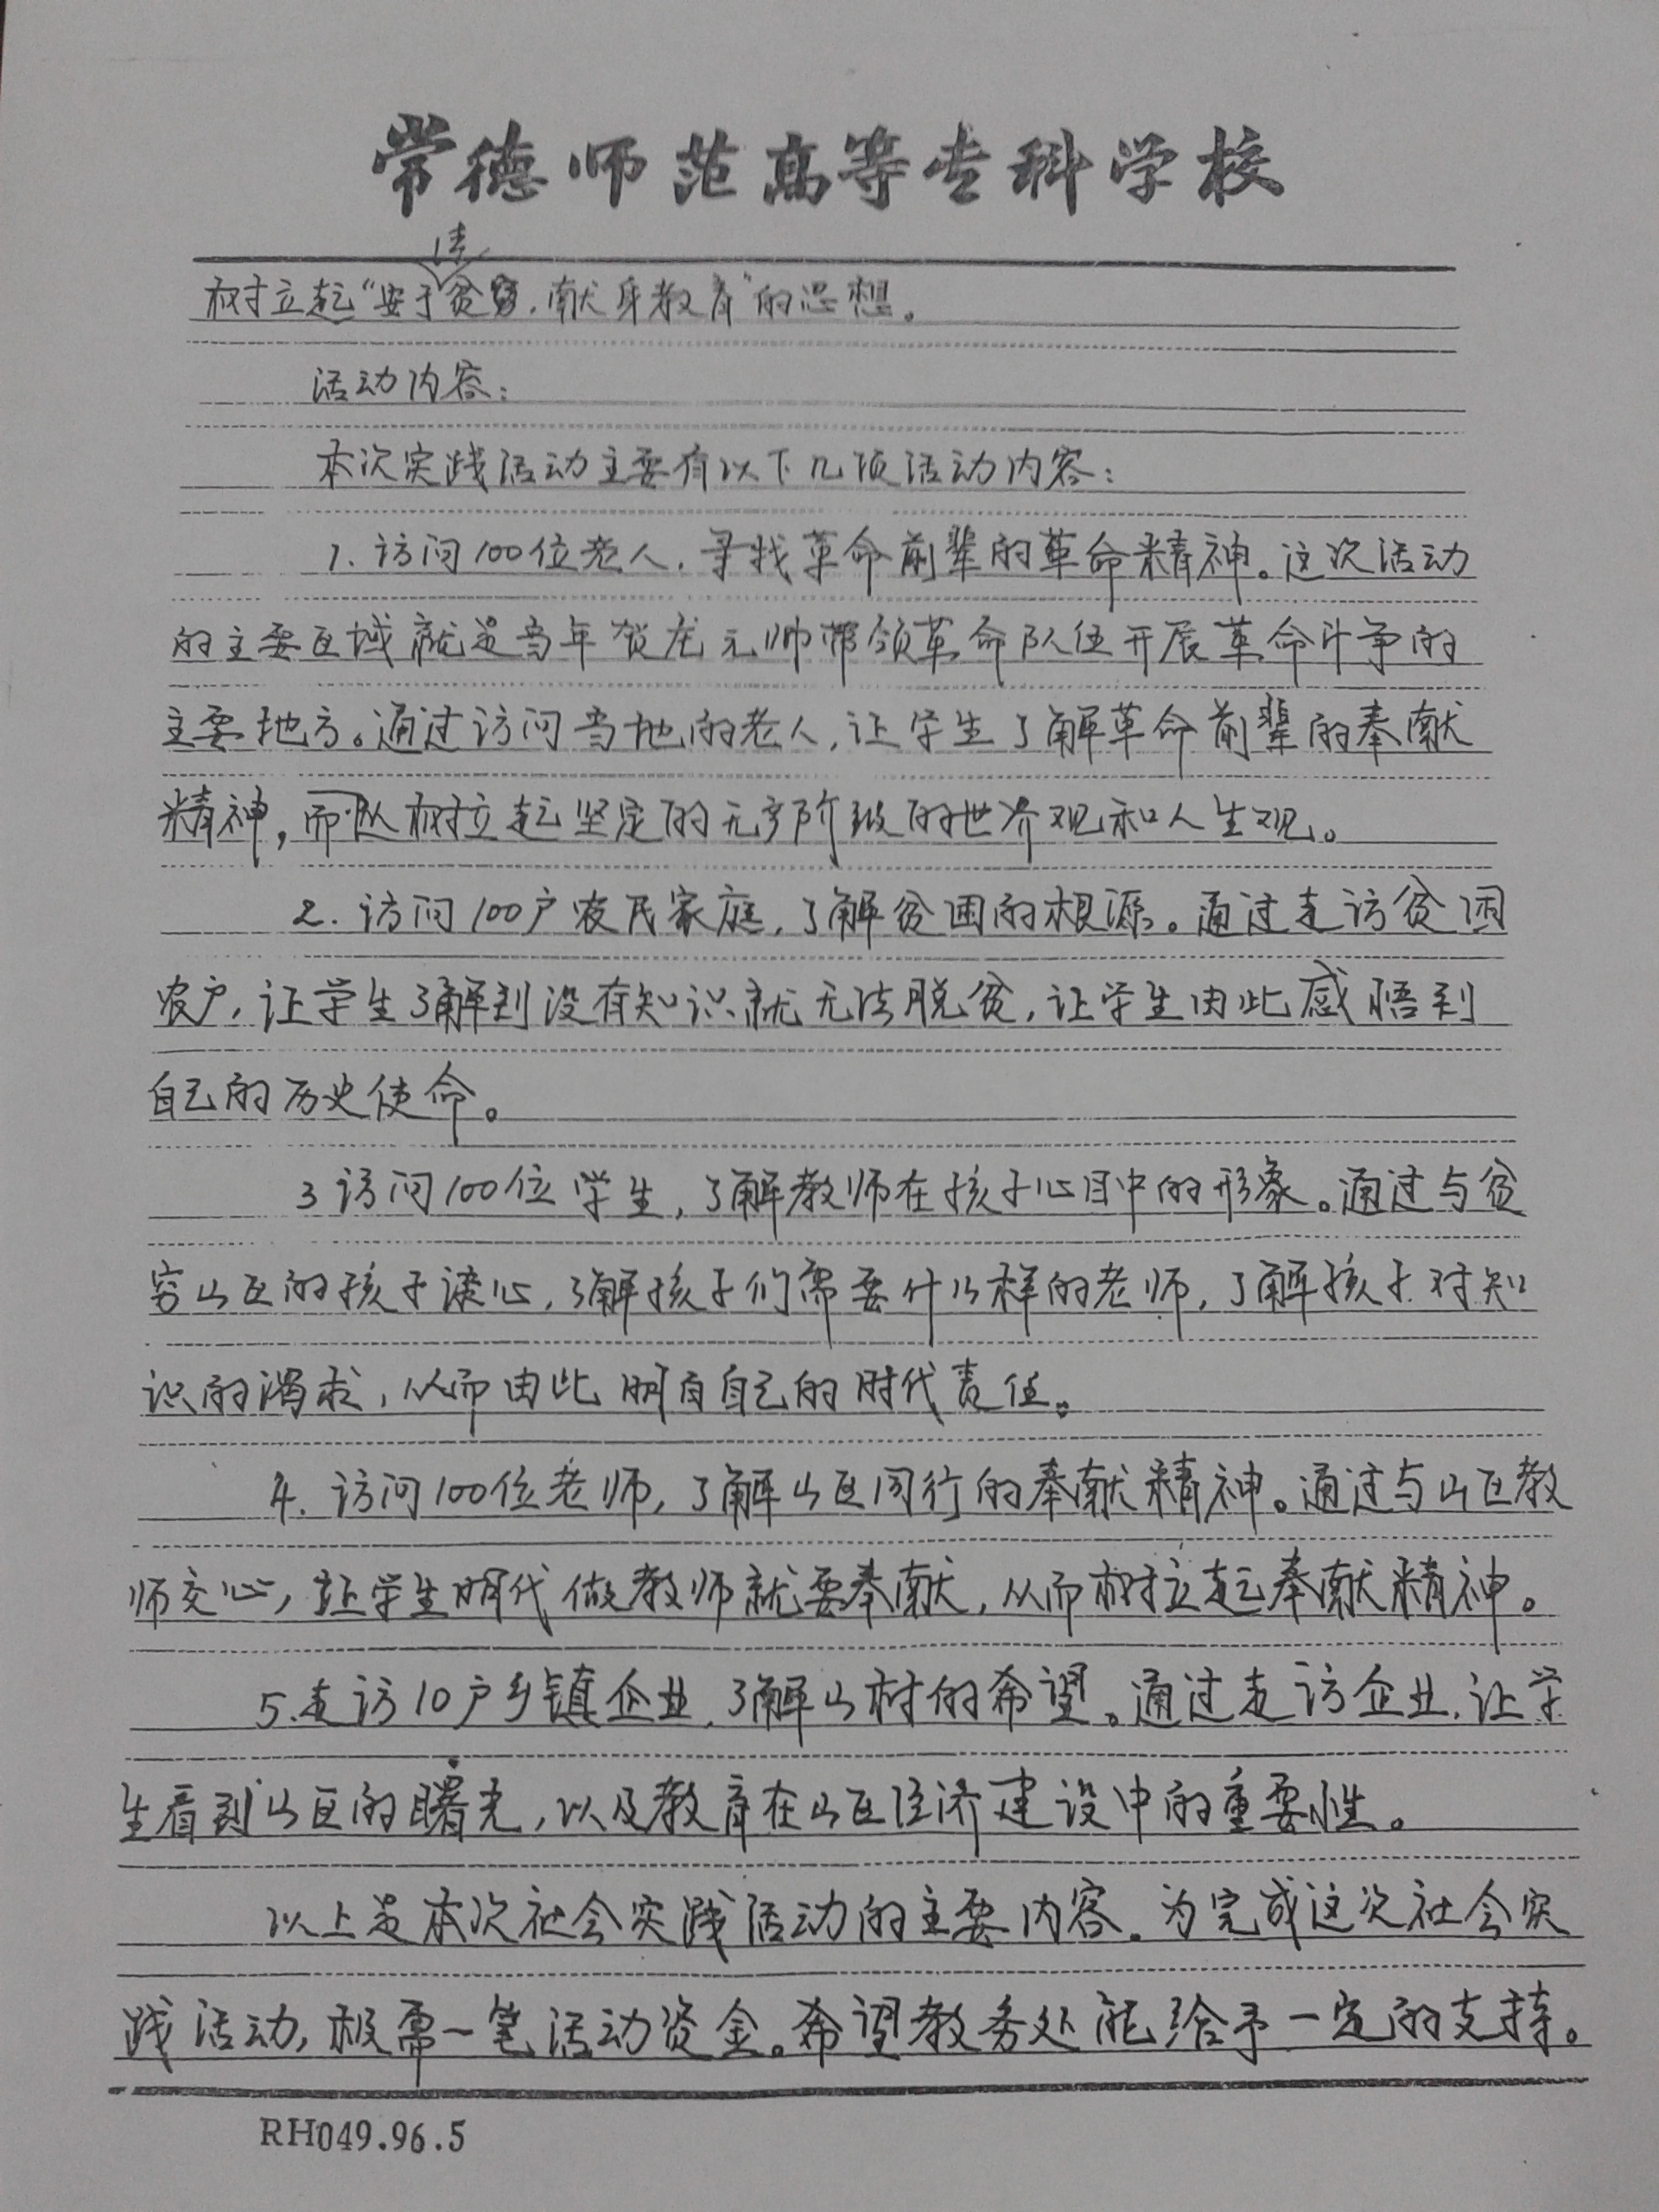 常德师范高等专科学校
清
树立起“安于贫,献身教育”的思想。
活动内容:
本次实践活动主要有以下几项活动内容:
1.访问100位老人,寻找革命前辈的革命精神。这次活动
的主要区域就是当年贺龙元帅带领革命队伍开展革命斗争的
主要地方。通过访问当地的老人,让学生了解革命前辈的奉献
精神,而从树立起坚定的无产阶级的世界观和人生观。
2.访问100户农民家庭,了解贫困的根源。通过走访贫困
农户,让学生了解到没有知识就无法脱贫,让学生由此感悟到
自己的历史使命。
3访问100位学生,了解教师在孩子心目中的形象。通过与贫
穷山区的孩子谈心,了解孩子们需要什么样的老师,了解孩子对知
识的渴求,从而由此明白自己的时代责任。
4.访问100位老师,了解山区同行的奉献精神。通过与山区教
师交心,让学生明代做教师就要奉献,从而树立起奉献精神。
5.走访10户乡镇企业,了解山村的希望。通过走访企业,让学
生看到山区的曙光,以及教育在山区经济建设中的重要性。
以上是本次社会实践活动的主要内容。为完成这次社会实
践活动,极需一笔活动资金。希望教务处能给予一定的支持。
RH049.96.5